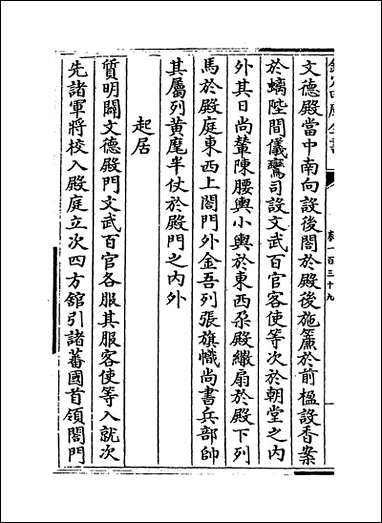 文德殿當中南向設後閤於殿後施簾於前楹設香案
於螭陛間儀鸞司設文武百官客使等次於朝堂之內
外其日尚輦陳腰輿小輿於東西朶殿繖扇於殿下列
馬於殿庭東西上閤門外金吾列張旗幟尚書兵部帥
其屬列黄麾半仗於殿門之内外
起居
質明闢文德殿門文武百官各服其服客使等入就次
先諸軍將校入殿庭立次四方舘引諸蕃國首領閤門